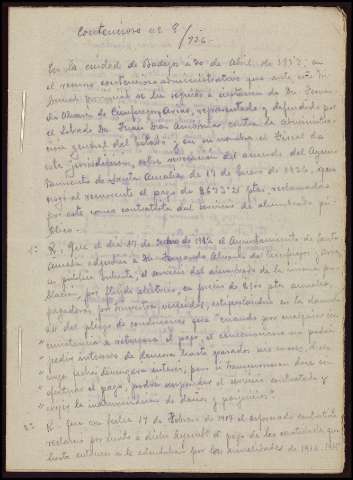 Contencioso nº 8/936
En la ciudad de Badajoz a 20 de Abril de 1937; en
el recurso contencioso administrativo que ante este Tri-
bunal provincial se ha seguido a instancia de D. Fernan-
do Alvarez de Cienfuegos, representado y defendido por
el Letrado D. Juan contra la administra-
ción general del Estado y en su nombre el Fiscal de
esta jurisdicción, sobre revocación del acuerdo del Ayun-
tamiento de Santa Amalia de 17 de Enero de 1936, que
negó al recurrente el pago de ptas, reclamadas
por este como contratista del servicio de alumbrado pú-
blico.
1º R. Que el día 27 de el Ayuntamiento de Santa
Amalia adjudicó a Don Fernando Alvarez de Cienfuegos
en pública subasta, el servicio del alumbrado de la misma po-
blación, por fluido eléctrico, en precio de ptas anuales,
pagaderas por trimestres vencidos, estipulándose en la
del pliego de condiciones que "cuando por cualquier cir-
cunstancia se retrasara el pago, el concesionario no podrá
"pedir intereses de demora hasta pasados seis meses, desde
"cuya fecha devengarán interés, pero si transcurriesen doce sin
"efectuar el pago, podrá suspender el servicio contratado y
"exigir la indemnización de daños y perjuicios."
2º R. que con fecha 17 de Febrero de 1917 el expresado contratista
reclamó por escrito a dicho Ayuntº el pago de las cantidades que
hasta entonces se le adeudaban por las anualidades de